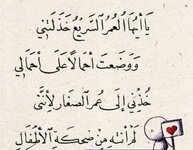 يَا أَيُّهَا العُمرُ السَّرِيعُ خَذَلتَنِي
وَوَضَعتَ أَحمَالًا عَلَى أَحمَالِي
خُذنِي إِلَى عُمرِ الصِّغَارِ لِأَنَّنِي
لَم أَنتَهِ مِن ضِحكَةِ الأَطفَالِ